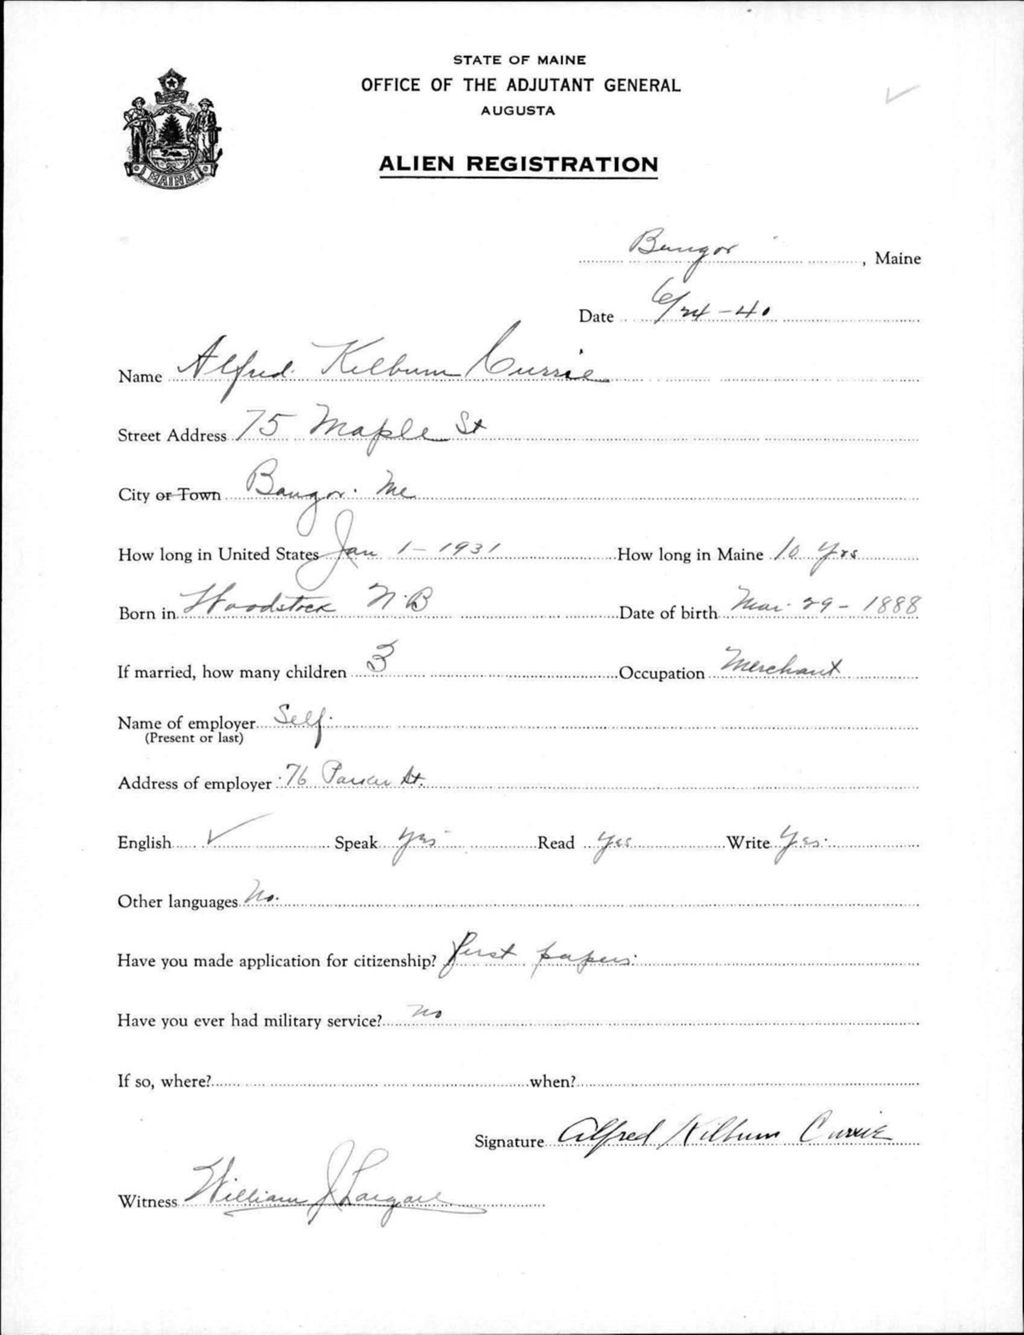 STATE OF MAINE
OFFICE OF THE ADJUTANT GENERAL
AUGUSTA
ALIEN REGISTRATION
MAINE
Bangor, Maine
Date 6/24-40
Name Alfred Kilburn Currie
Street Address 75 Maple St
City or Town Bangor. Me
How long in United States Jan 1 - 1931 How long in Maine 10 Yrs
Born in Woodstock N.B Date of birth Mar. 29 - 1888
If married, how many children 3 Occupation Merchant
Name of employer Self.
(Present or last)
Address of employer 76 Parker St.
English ✓ Speak Yes Read Yes Write Yes.
Other languages No.
Have you made application for citizenship? first papers.
Have you ever had military service? No
If so, where? when?
Signature Alfred Kilburn Currie
Witness William J